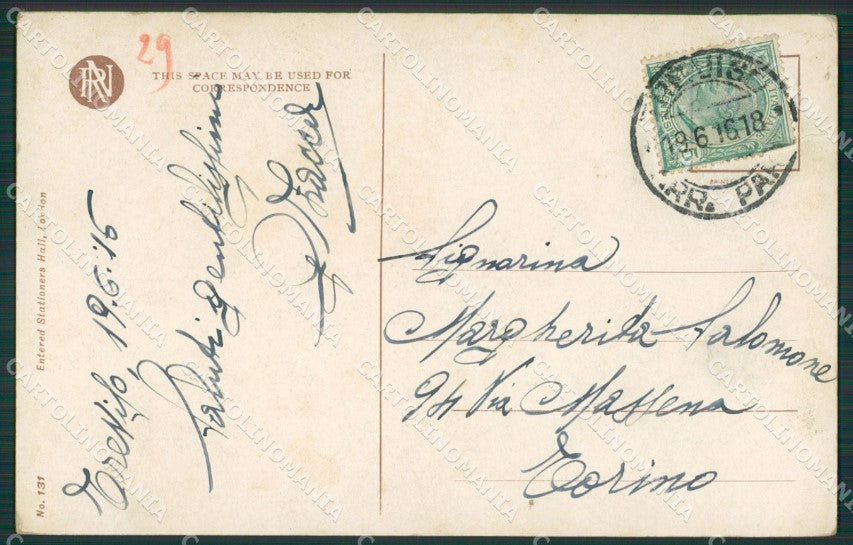 RN
29
THIS SPACE MAY BE USED FOR
CORRESPONDENCE
19.6.'16
Saluti gentilissimi
Entered Stationers Hall, London
No. 131
19.6.16 18
ARR. PAR
Signorina
Margherita Salomone
94 Via Massena
Torino
CARTOLINOMANIA